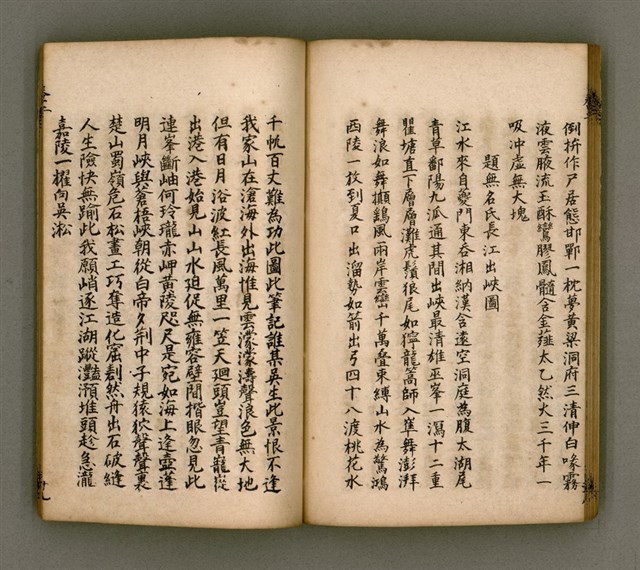 倒枬作尸居態邯鄲一枕夢黃粱洞府三清伸白喙霧
液雲腴流玉酥鸞膠鳳髓含金薤太乙然火三千年一
吸冲虛無大塊
題無名氏長江出峽圖
江水來自夔門東吞湘納漢含遠空洞庭為腹太湖尾
青草鄱陽九派通其間出峽最清雄巫峯一瀉十二重
瞿塘直下層層灘虎鬚狼尾如獰龍篙師入峯舞澎湃
舞浪如舞擷鷁風兩岸雲巒千萬叠束縛山水為驚鴻
西陵一放到夏口出溜勢如箭出弓四十八渡桃花水
千帆百丈難為功此圖此筆記誰某吳生此景恨不逢
我家山在滄海外出海惟見雲濛濛濤聲浪色無大地
但有日月浴波紅長風萬里一笠天廻頭豈望青巃嵸
出港入港始見山山水迫促無雍容壁間楷眼忽見此
連峯斷岫何玲瓏赤岬黃陵咫尺是宛如海上逢壺蓬
明月峽與蒼梧峽朝從白帝夕荆中子規猿狖聲聲裏
楚山蜀嶺危石松畫工巧奪造化窟劃然舟出石破縫
人生險快無踰此我願峭逐江湖蹤灩澦堆頭趁急瀧
嘉陵一櫂向吳淞